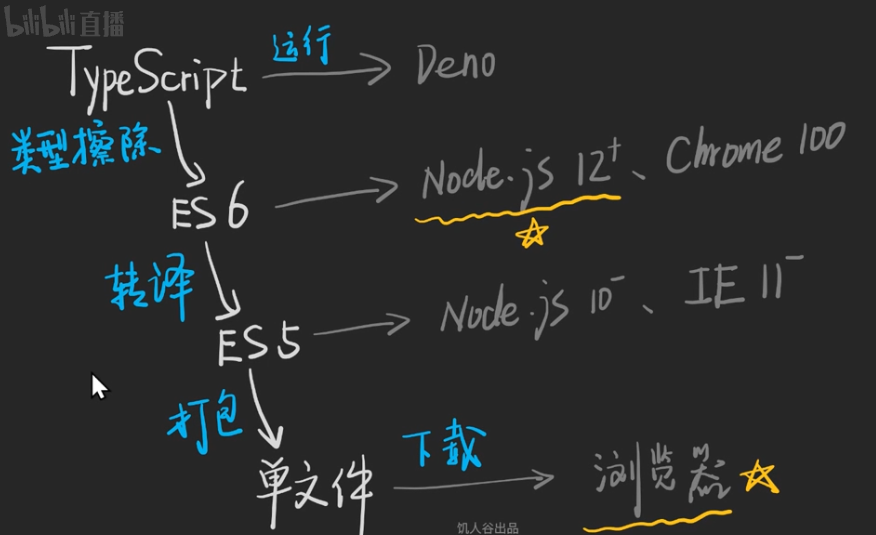 bilibili直播
TypeScript 运行 Deno
类型擦除
ES6 Node.js 12+、Chrome 100
转译
ES5 Node.js 10-、IE 11-
打包
单文件 下载 浏览器
饥人谷出品